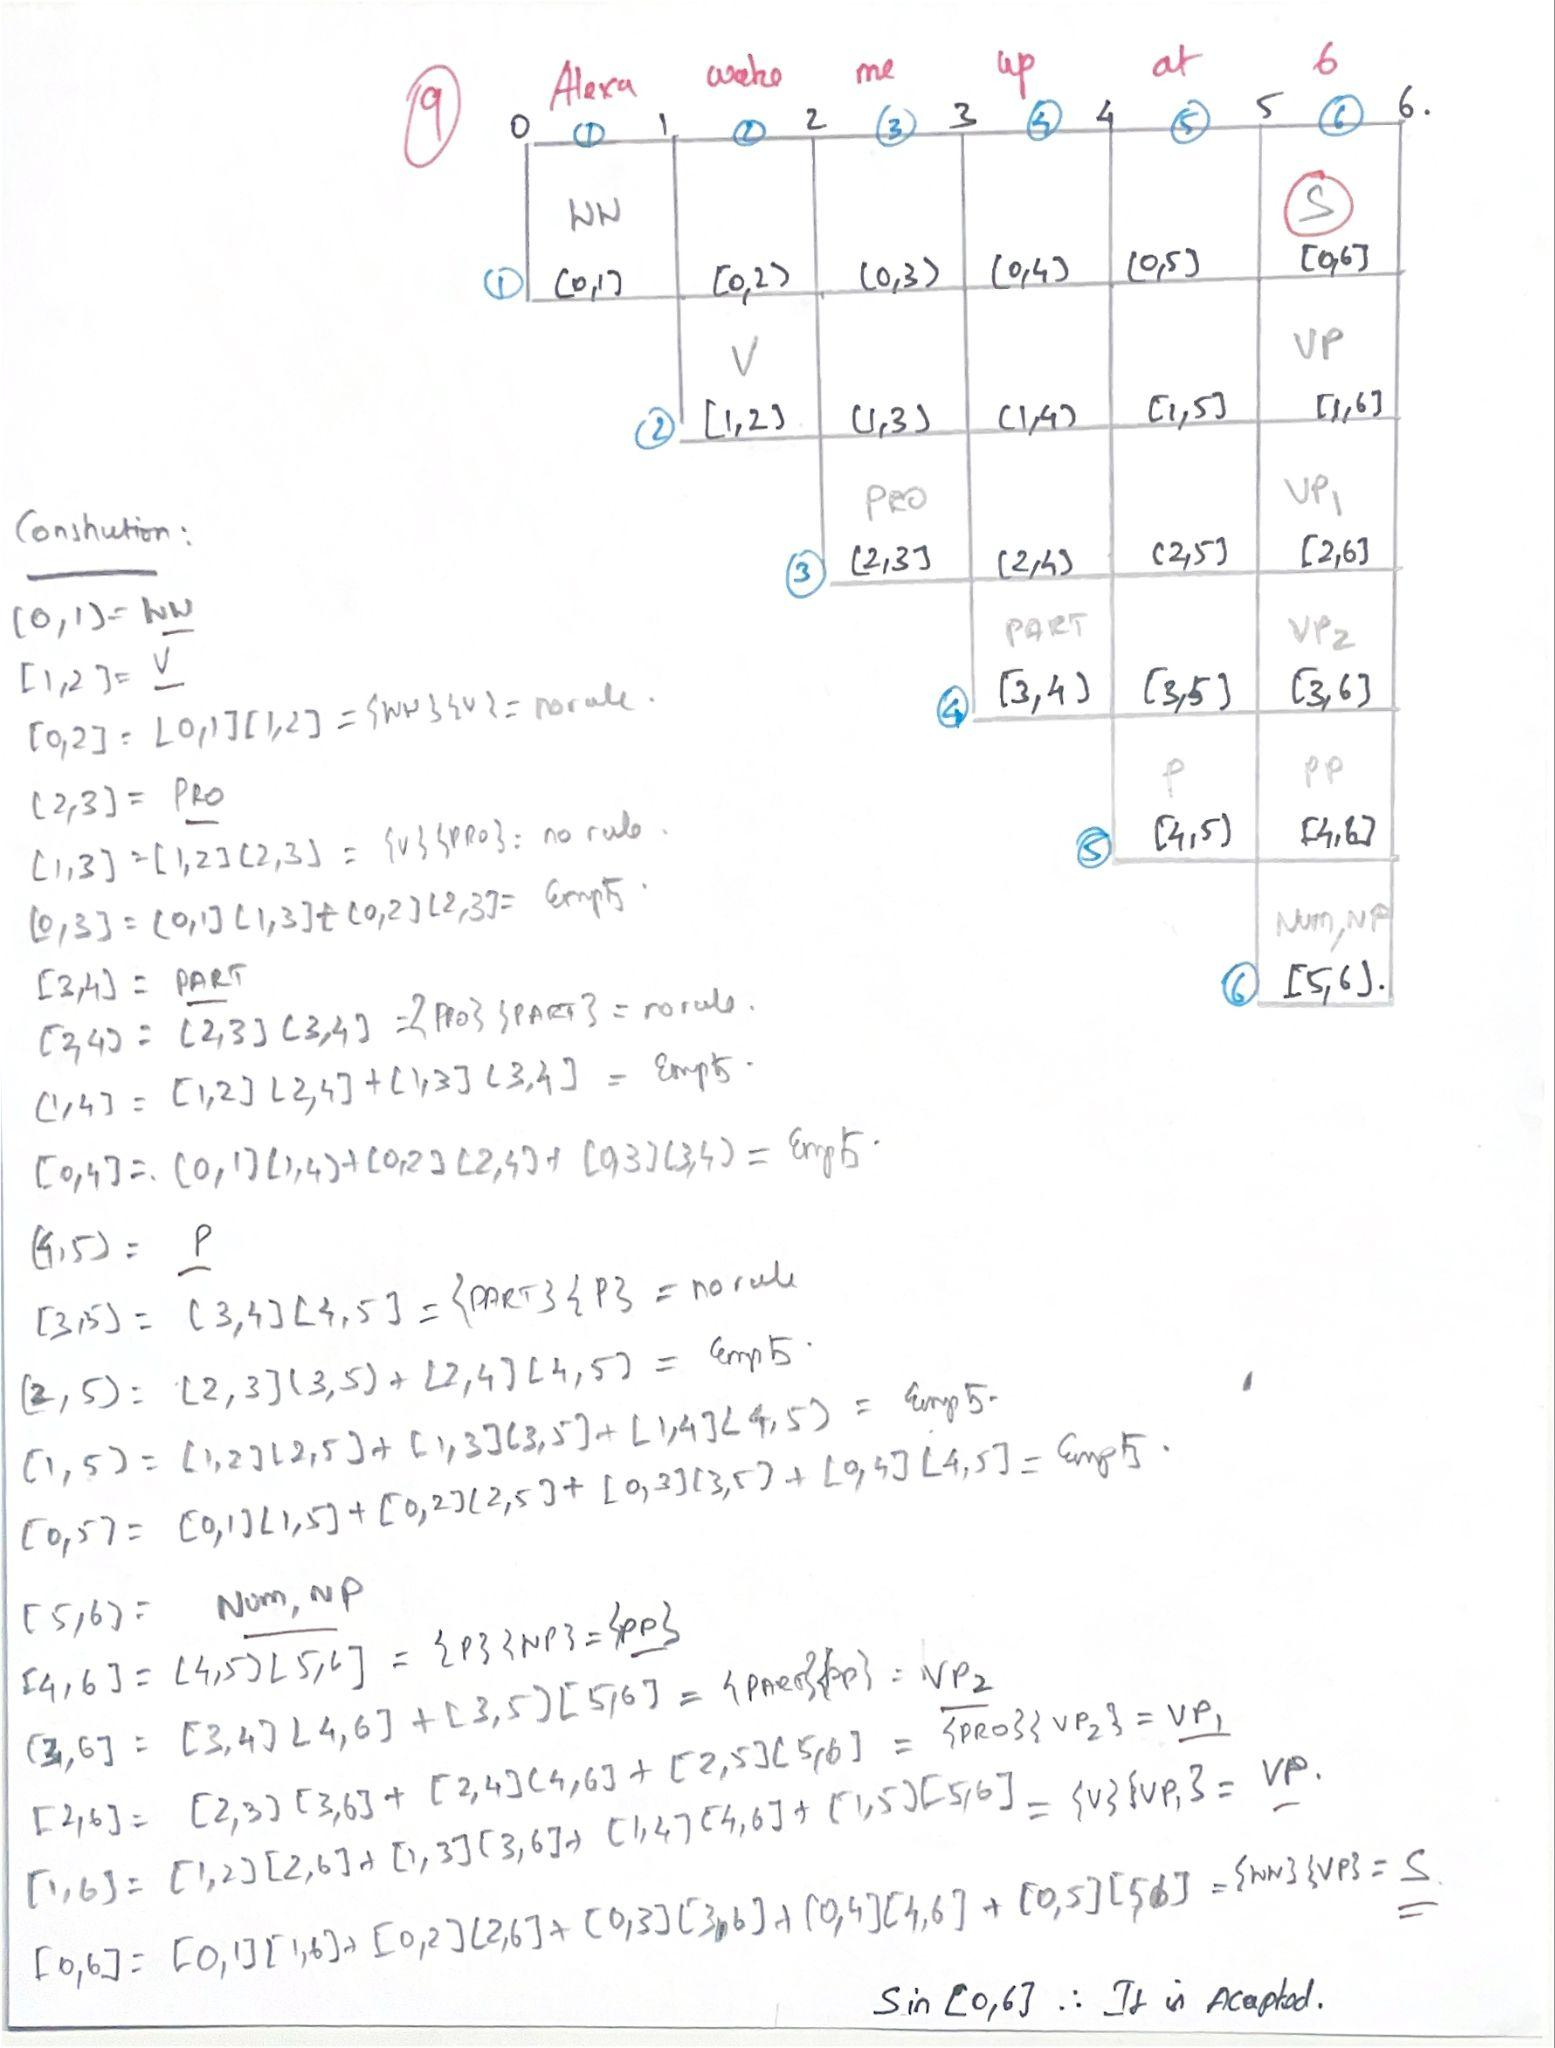 9
Alexa wake me up at 6
0 ① 1 ② 2 ③ 3 ④ 4 ⑤ 5 ⑥ 6.
NN S
① [0,1] [0,2] [0,3] [0,4] [0,5] [0,6]
V VP
② [1,2] [1,3] [1,4] [1,5] [1,6]
PRO VP1
③ [2,3] [2,4] [2,5] [2,6]
PART VP2
④ [3,4] [3,5] [3,6]
P PP
⑤ [4,5] [4,6]
Num, NP
⑥ [5,6].
Constuction:
[0,1] = NN
[1,2] = V
[0,2] = [0,1][1,2] = {NN}{V} = no rule.
[2,3] = PRO
[1,3] = [1,2][2,3] = {V}{PRO} = no rule.
[0,3] = [0,1][1,3] + [0,2][2,3] = Empty.
[3,4] = PART
[2,4] = [2,3][3,4] = {PRO}{PART} = no rule.
[1,4] = [1,2][2,4] + [1,3][3,4] = Empty.
[0,4] = [0,1][1,4] + [0,2][2,4] + [0,3][3,4] = Empty.
[4,5] = P
[3,5] = [3,4][4,5] = {PART}{P} = no rule
[2,5] = [2,3][3,5] + [2,4][4,5] = Empty.
[1,5] = [1,2][2,5] + [1,3][3,5] + [1,4][4,5] = Empty.
[0,5] = [0,1][1,5] + [0,2][2,5] + [0,3][3,5] + [0,4][4,5] = Empty.
[5,6] = Num, NP
[4,6] = [4,5][5,6] = {P}{NP} = {PP}
[3,6] = [3,4][4,6] + [3,5][5,6] = {PART}{PP} = VP2
[2,6] = [2,3][3,6] + [2,4][4,6] + [2,5][5,6] = {PRO}{VP2} = VP1
[1,6] = [1,2][2,6] + [1,3][3,6] + [1,4][4,6] + [1,5][5,6] = {V}{VP1} = VP.
[0,6] = [0,1][1,6] + [0,2][2,6] + [0,3][3,6] + [0,4][4,6] + [0,5][5,6] = {NN}{VP} = S
S in [0,6] ∴ It is Accepted.